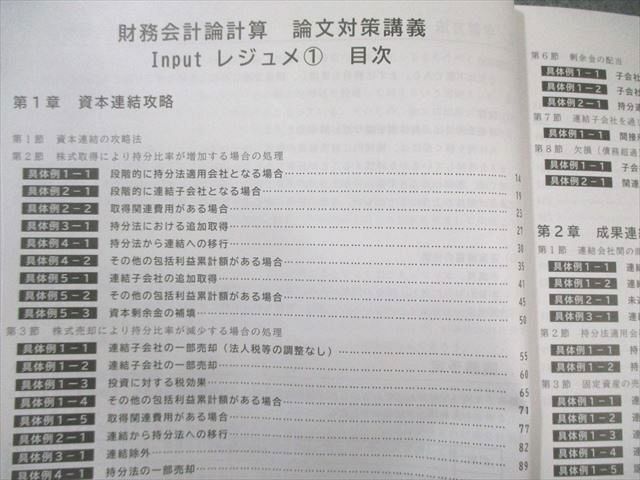 財務会計論計算 論文対策講義
Input レジュメ① 目次
第1章 資本連結攻略
第1節 資本連結の攻略法
第2節 株式取得により持分比率が増加する場合の処理
具体例1-1 段階的に持分法適用会社となる場合 14
具体例2-1 段階的に連結子会社となる場合 19
具体例2-2 取得関連費用がある場合 23
具体例3-1 持分法における追加取得 27
具体例4-1 持分法から連結への移行 30
具体例4-2 その他の包括利益累計額がある場合 35
具体例5-1 連結子会社の追加取得 41
具体例5-2 その他の包括利益累計額がある場合 45
具体例5-3 資本剰余金の補填 50
第3節 株式売却により持分比率が減少する場合の処理
具体例1-1 連結子会社の一部売却(法人税等の調整なし) 55
具体例1-2 連結子会社の一部売却 60
具体例1-3 投資に対する税効果 65
具体例1-4 その他の包括利益累計額がある場合 71
具体例1-5 取得関連費用がある場合 77
具体例2-1 連結から持分法への移行 82
具体例3-1 連結除外 89
具体例4-1 持分法の一部売却
第6節 剰余金の配当
具体例1-1 子会
具体例1-2 子会
具体例2-1 持分
第7節 連結子会社を通じ
具体例1-1 間接
第8節 欠損(債務超過
具体例1-1 子会
具体例2-1 関連
第2章 成果連結
第1節 連結会社間の
具体例1-1 連結
具体例1-2 連結
具体例2-1 未
具体例3-1 連結
第2節 持分法適用会
具体例1-1 持分
具体例1-2 持分
第3節 固定資産の売
具体例1-1 連
具体例1-2 連
具体例1-3 連
具体例1-4 連
具体例1-5